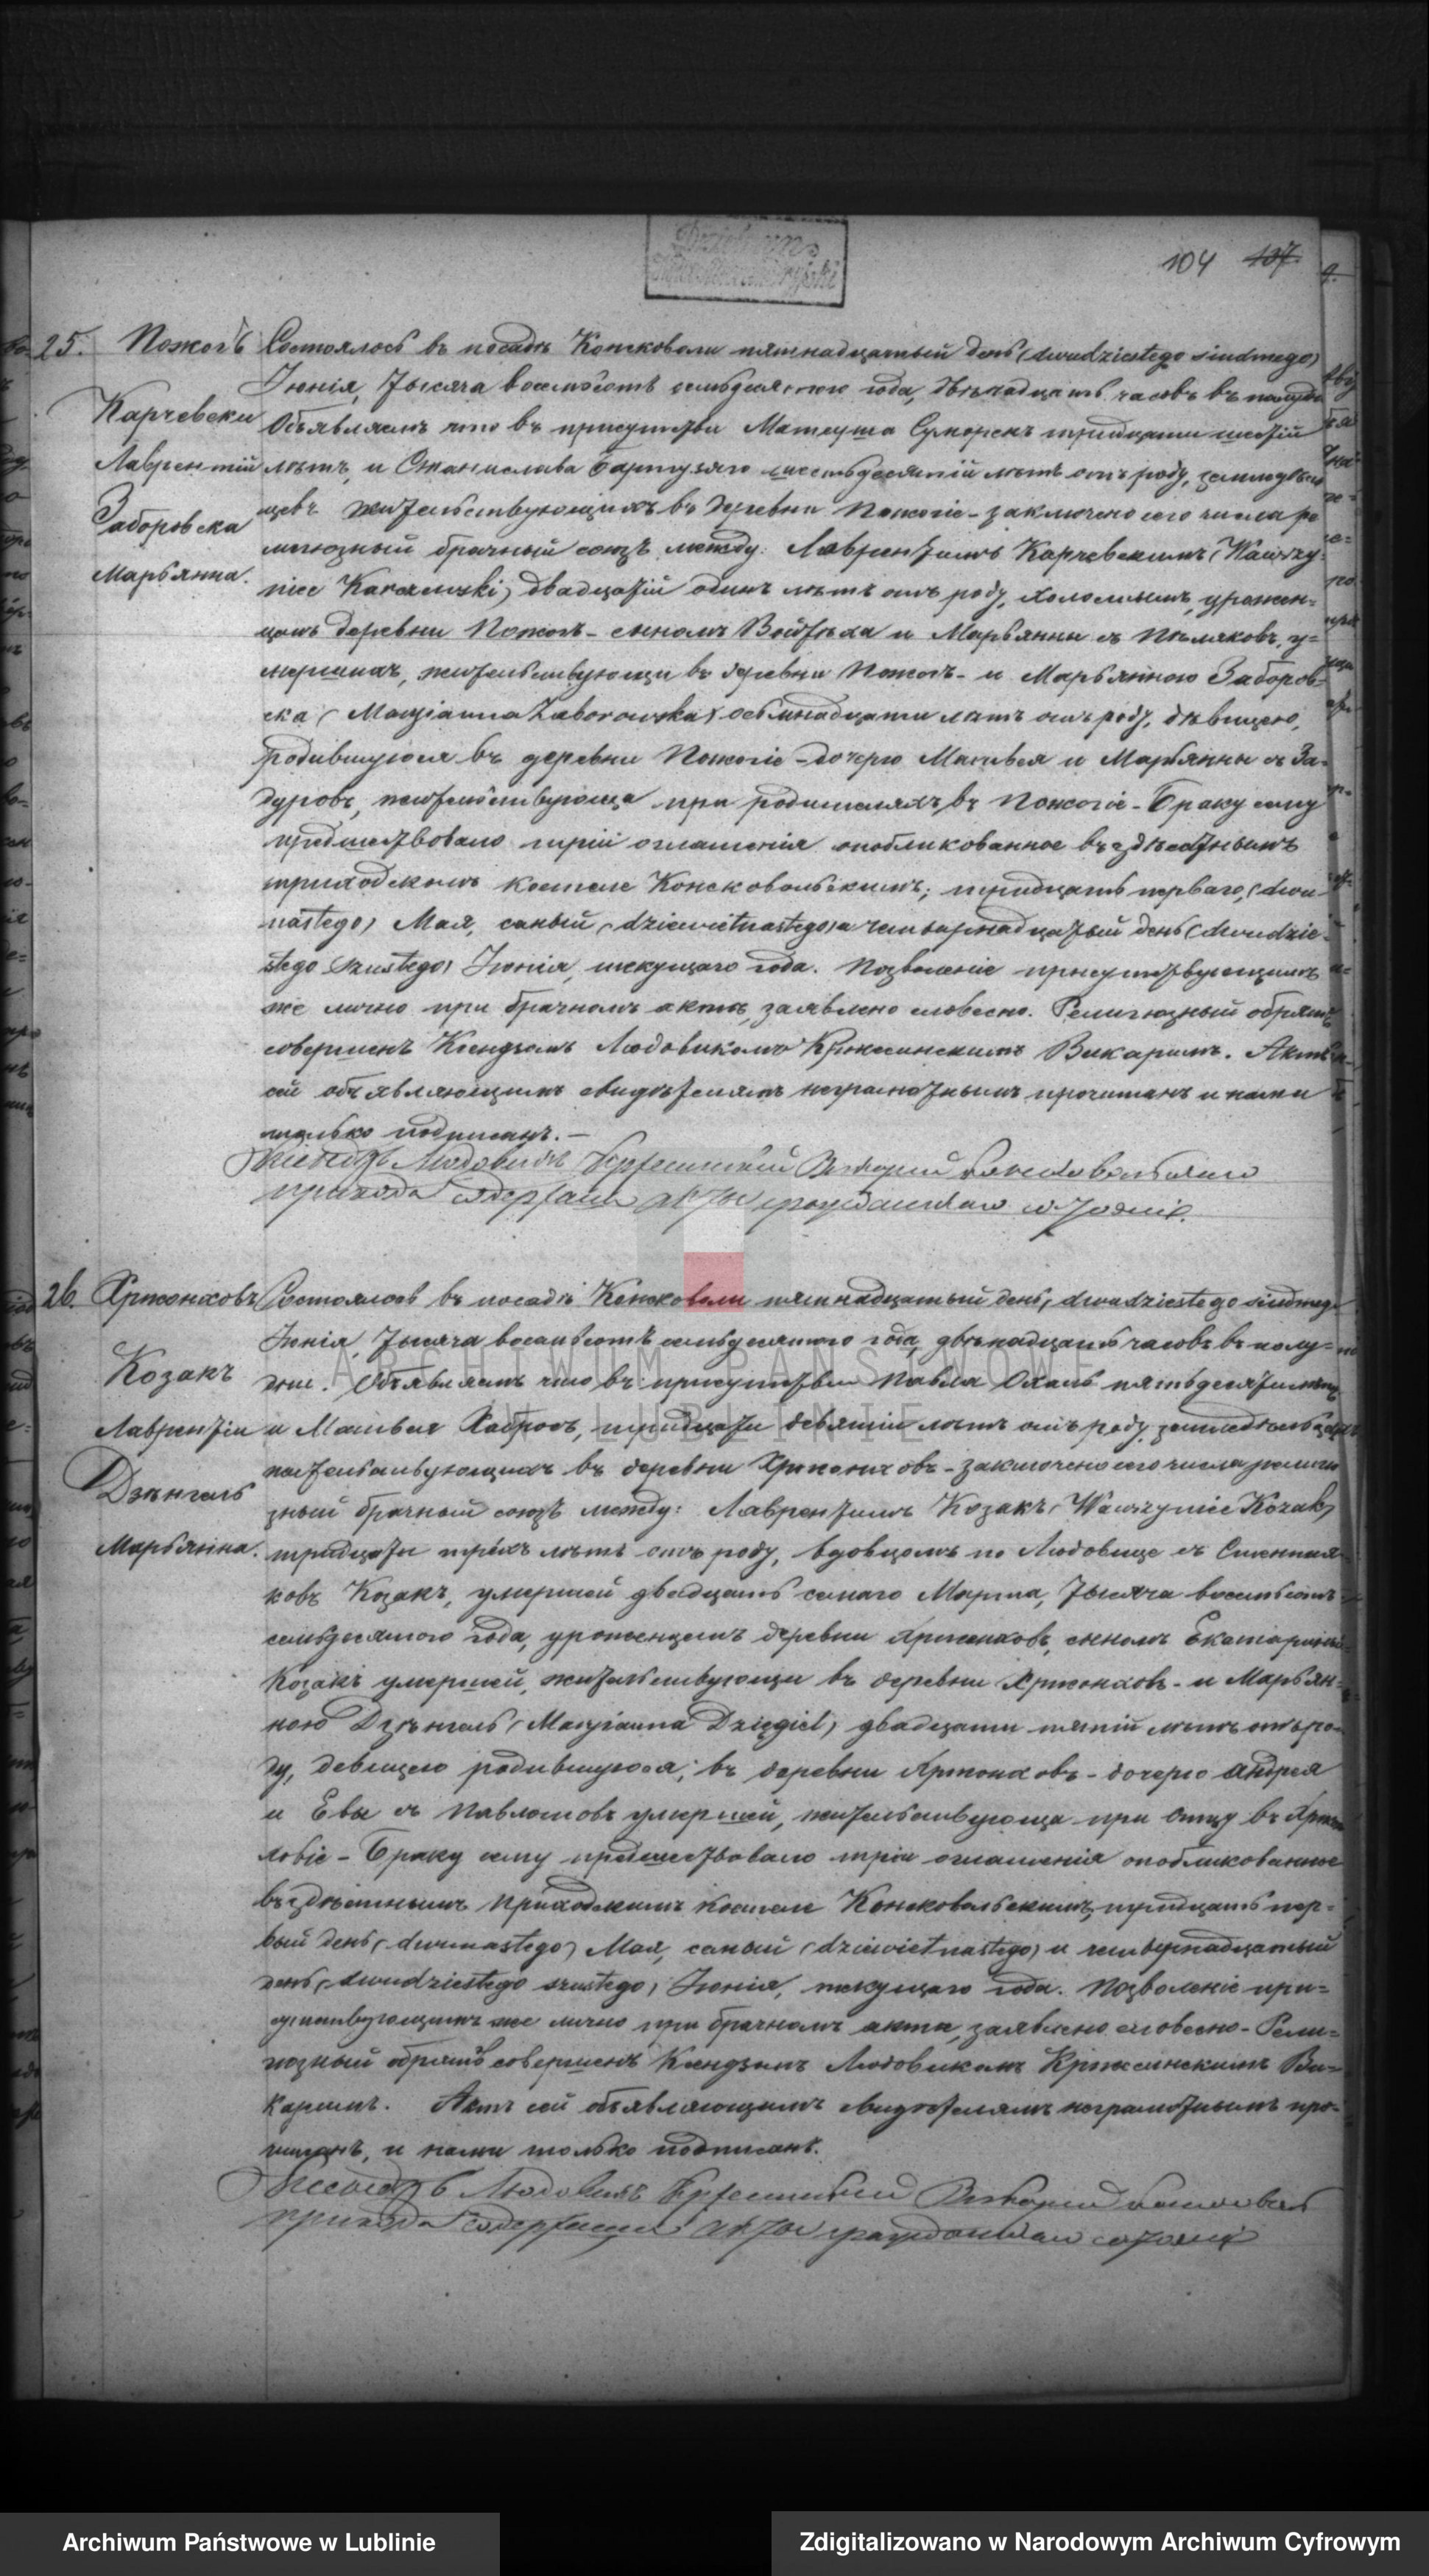 104 107.
25. Пожогъ
Карчевски
Лаврентій
Заборовска
Марьянна.
Состоялось въ посадѣ Консковоли пятнадцатый день (dwudziestego siudmego)
Іюнія, тысяча восемьсотъ семьдесятого года, двѣнадцать часовъ въ полудне
Объявляемъ что въ присутствіи Матеуша тридцати шестій
лѣтъ, и Станислава шестьдесятій лѣтъ отъ роду, земледѣль
цевъ жительствующихъ въ деревни Пожогіе - заключено сего числа ре
лигіозный брачный союзъ между: Лаврентымъ Карчевскимъ (Wawrzy-
niec Karczewski) двадцатій одинъ лѣтъ отъ роду, холостымъ, урожен=
цомъ деревни Пожогъ - сыномъ Войтѣха и Марьянны съ у=
мершихъ, жительствующи въ деревни Пожогъ - и Марьянною Заборов-
ска (Maryianna Zaborowska) осьмнадцати лѣтъ отъ роду, дѣвицею,
родившуюся въ деревни Пожогіе - дочерю Матвея и Марьянны съ За-
дуровъ, жительствующа при родителяхъ въ Пожогіе - Браку сему
предшествовало трій оглашенія опобликованное въ здѣсѣтнымъ
приходскомъ костеле Консковольскимъ; тридцать перваго, (dwu-
nastego) Мая, самый (dziewietnastego) а четырнадцатый день (dwudzie-
stego szustego) Іюнія, текущаго года. Позволеніе присутствующимъ
же лично при брачномъ актѣ, заявлено словесно. Религіозный обрядъ
совершенъ Ксендзомъ Людовикомъ Викаримъ. Актъ
сей объявляющимъ свидѣтелямъ неграмотнымъ прочитанъ и нами
только подписанъ. —
Ксендзъ Людовикъ Викарій Консковольскаго
прихода содержащій акты гражданскаго состоянія.
26. Хржонховъ
Козакъ
Лаврентіи
Дзѣнгель
Марьянна.
Состоялось въ посадѣ Консковоли пятнадцатый день, dwudziestego siudmego
Іюнія, тысяча восемьсотъ семьдесятого года, двѣнадцать часовъ въ полу=
дне. Объявляемъ что въ присутствіи Павла пятьдесяти лѣтъ
и Матвея тридцати девятій лѣтъ отъ роду, земледѣльцевъ
жительствующихъ въ деревни Хржонховъ - заключено сего числа религіо
зный брачный союзъ между: Лаврентымъ Козакъ, (Wawrzyniec Kozak)
тридцати трёхъ лѣтъ отъ роду, вдовцомъ по Людовице съ
ковъ Козакъ, умершей двадцать самаго Марта, тысяча восемьсотъ
семьдесятого года, уроженцемъ деревни Хржонховъ, сыномъ Екатарины
Козакъ умершей, жительствующи въ деревни Хржонховъ - и Марьян-
ною Дзѣнгель (Maryianna Dzięgiel) двадцати пятій лѣтъ отъ ро-
ду, девицею родившуюся; въ деревни Хржонховъ - дочерю Андрея
и Евы съ Павлотовъ умершей, жительствующа при отцу въ Хржон
ховіе - Браку сему предшествовало трій оглашенія опобликованное
въ здѣсѣтнымъ приходскимъ костеле Консковольскимъ, тридцать пер-
вый день (dwunastego) Мая, самый (dziewietnastego) и четырнадцатый
день, dwudziestego szustego) Іюнія, текущаго года. Позволеніе при=
сутствующимъ же лично при брачномъ акти, заявлено словесно - Рели=
гіозный обрядъ совершенъ Ксендзомъ Людовикомъ Ви=
каримъ. Актъ сей объявляющимъ свидѣтелямъ неграмотнымъ про-
читанъ, и нами только подписанъ.
Ксендзъ Людовикъ Викарій
прихода содержащій акты гражданскаго состоянія
ARCHIWUM PAŃSTWOWE
W LUBLINIE
Archiwum Państwowe w Lublinie
Zdigitalizowano w Narodowym Archiwum Cyfrowym